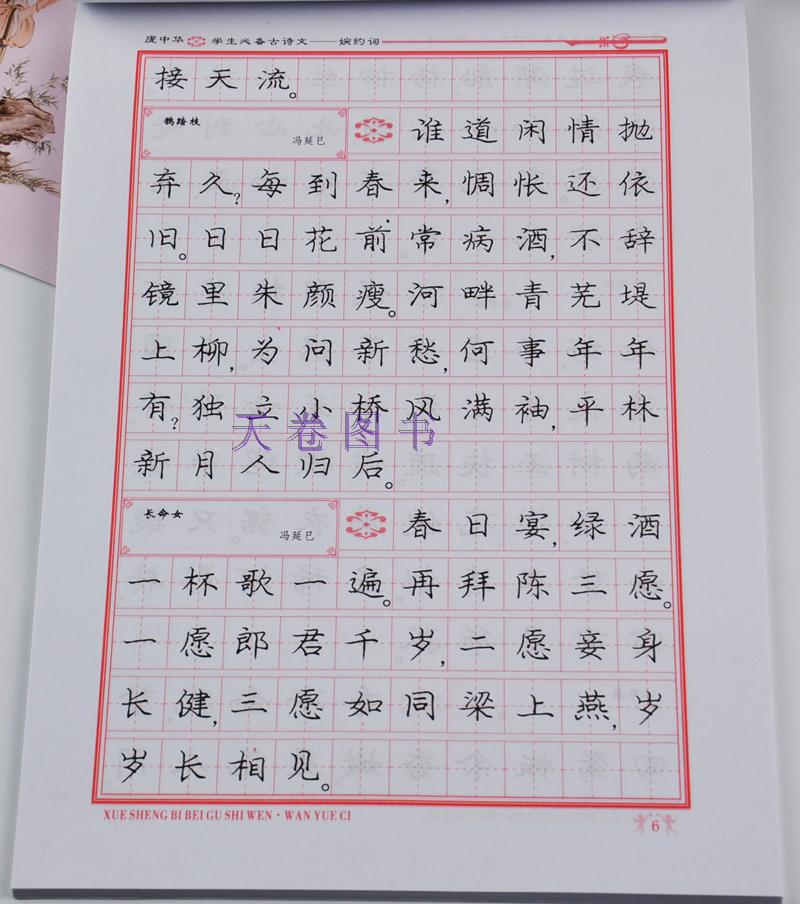 庞中华 学生必备古诗文——婉约词
接天流。
鹊踏枝
冯延巳
谁道闲情抛
弃久?每到春来,惆怅还依
旧。日日花前常病酒,不辞
镜里朱颜瘦。河畔青芜堤
上柳,为问新愁,何事年年
有?独立小桥风满袖,平林
新月人归后。
天卷图书
长命女
冯延巳
春日宴,绿酒
一杯歌一遍。再拜陈三愿。
一愿郎君千岁,二愿妾身
长健,三愿如同梁上燕,岁
岁长相见。
XUE SHENG BI BEI GU SHI WEN · WAN YUE CI
6